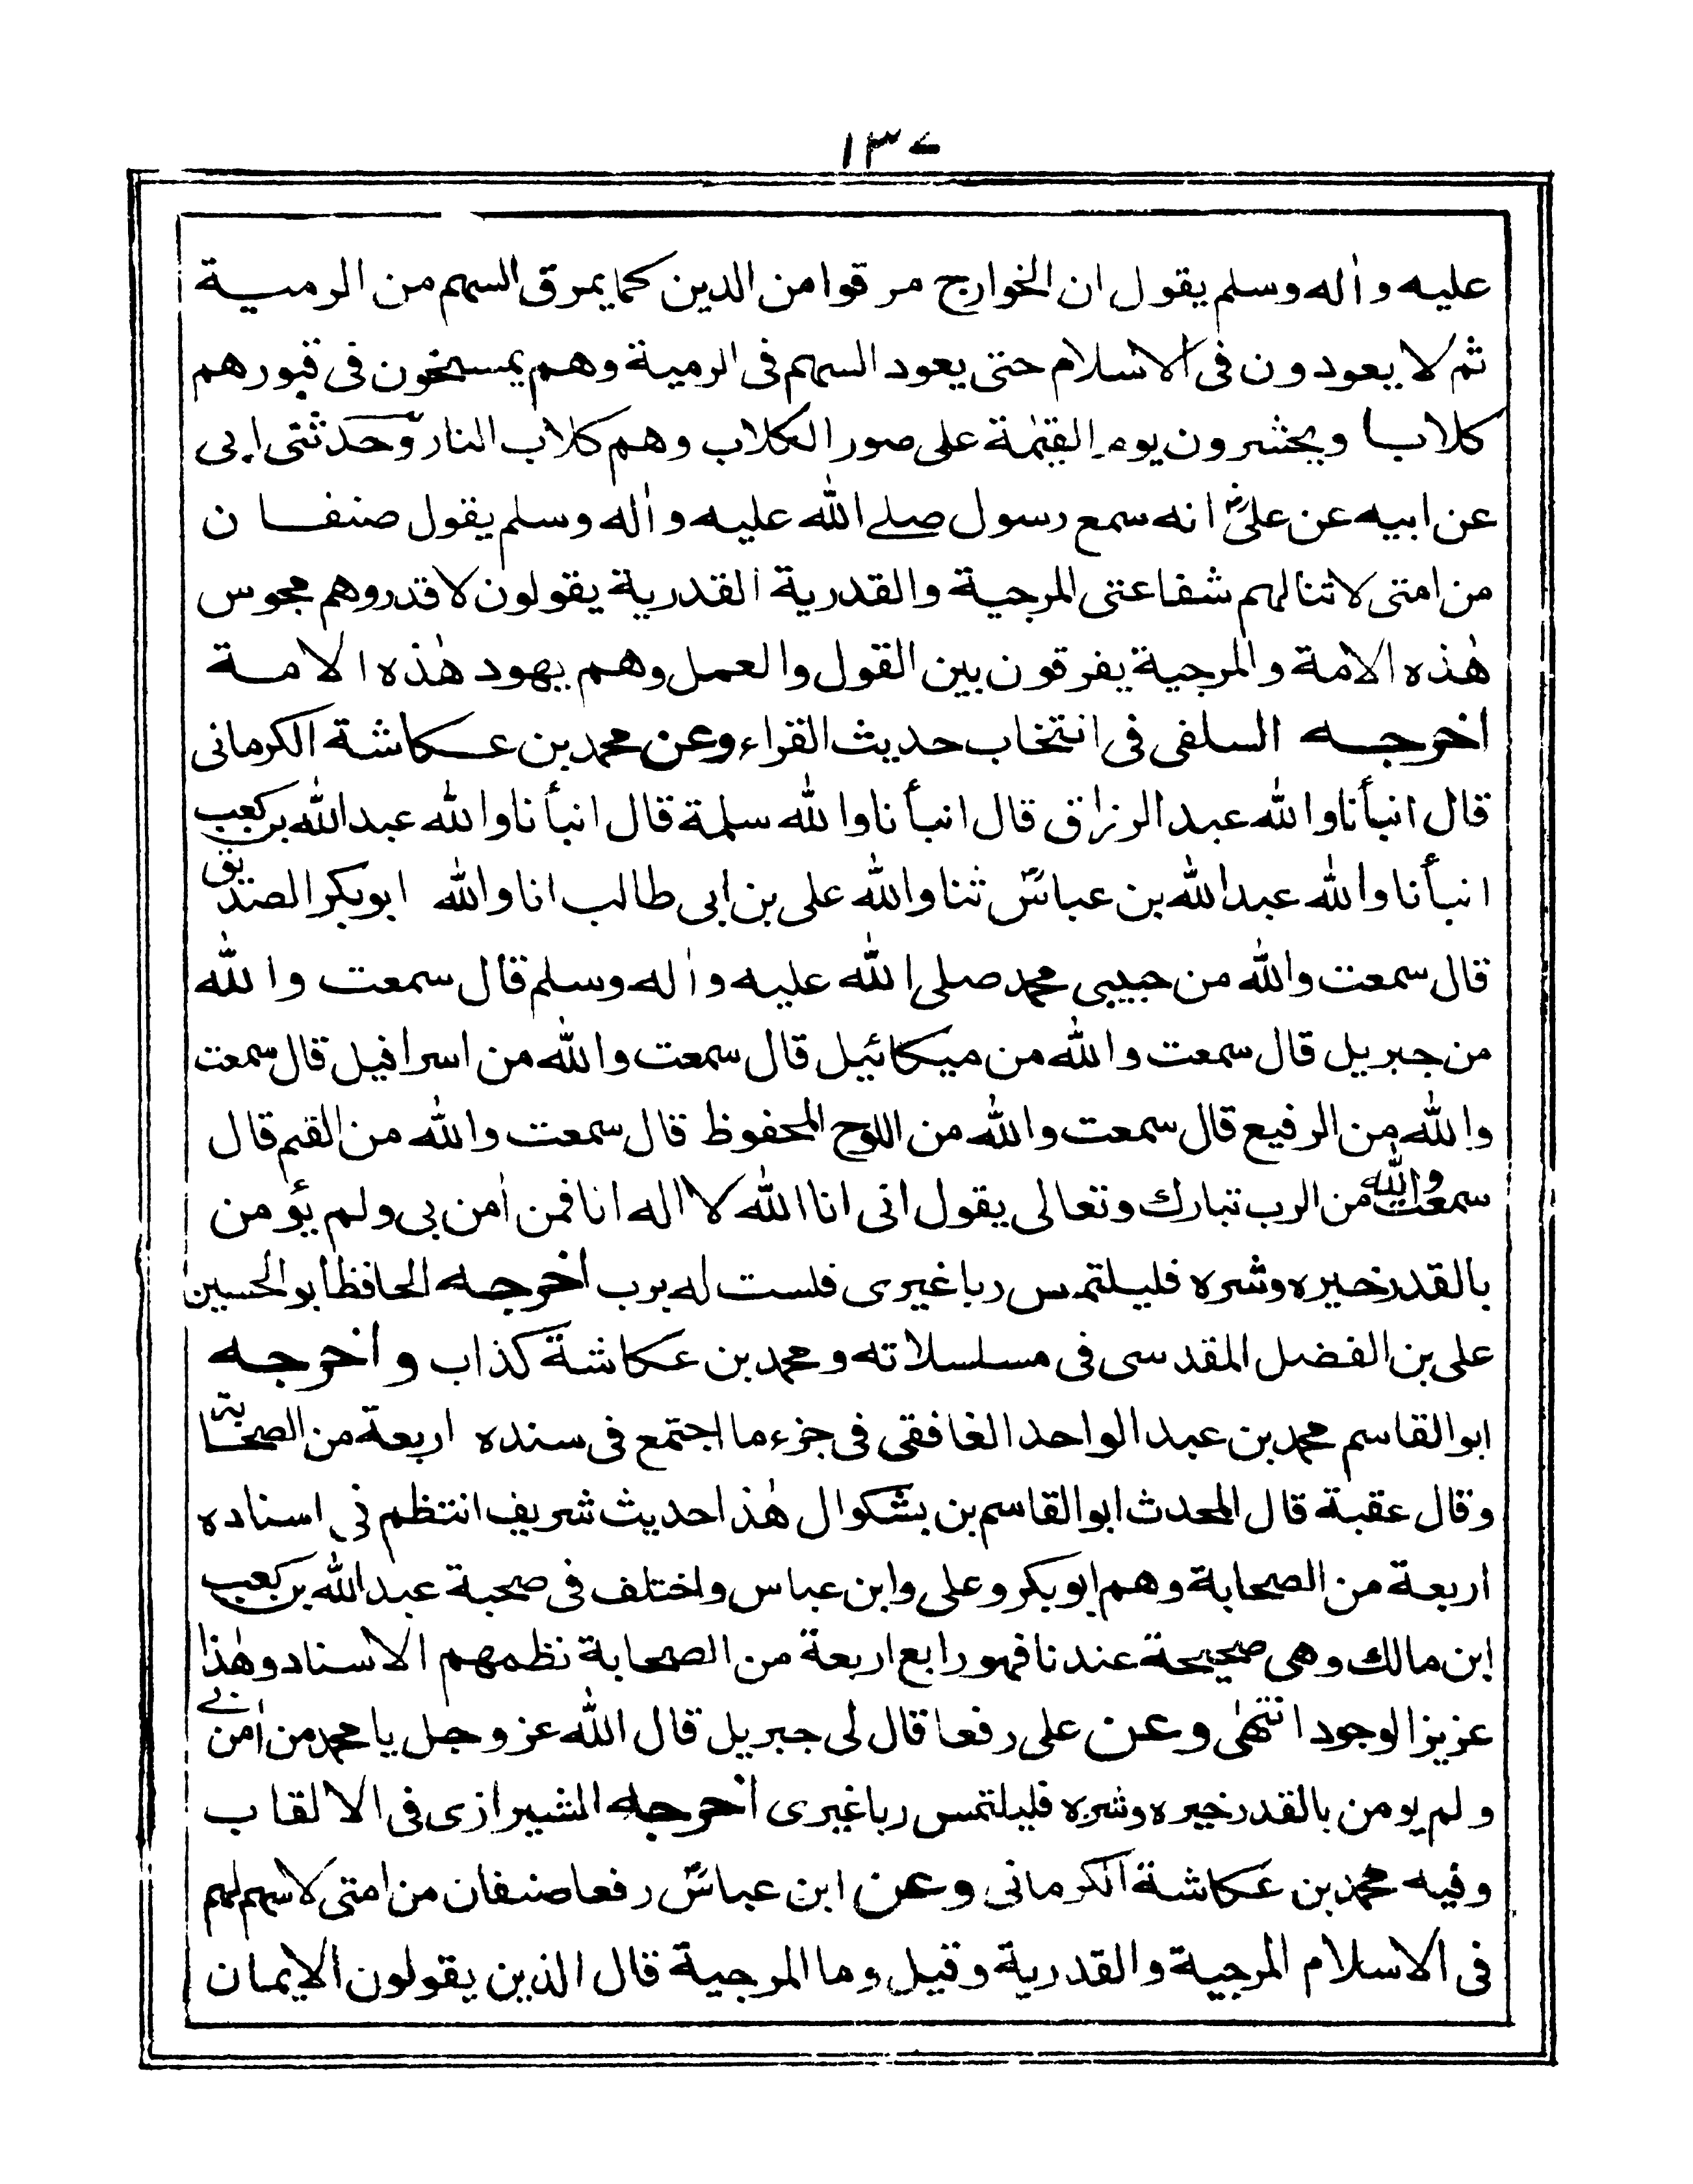 ١٣٧
عليه واٰله وسلم يقول ان الخوارج مرقوا من الدين كما يمرق السهم من الرمية
ثم لا يعودون فى الاسلام حتى يعود السهم فى الرمية وهم يمسخون فى قبورهم
كلابا ويحشرون يوم القيٰمة على صور الكلاب وهم كلاب النار وحدثنى ابى
عن ابيه عن علىؓ انه سمع رسول صلے الله عليه واٰله وسلم يقول صنفان
من امتى لا تنالهم شفاعتى المرجية والقدرية القدرية يقولون لا قدر وهم مجوس
هٰذه الامة والمرجية يفرقون بين القول والعمل وهم يهود هٰذه الامة
اخرجه السلفى فى انتخاب حديث القراء وعن محمد بن عكاشة الكرمانى
قال انبأنا والله عبد الرزاق قال انبأنا والله سلمة قال انبأنا والله عبد الله بن كعب
انبأنا والله عبد الله بن عباسؓ ثنا والله على بن ابى طالب انا والله ابوبكر الصديق
قال سمعت والله من حبيبى محمد صلى الله عليه واٰله وسلم قال سمعت والله
من جبريل قال سمعت والله من ميكائيل قال سمعت والله من اسرافيل قال سمعت
والله من الرفيع قال سمعت والله من اللوح المحفوظ قال سمعت والله من القلم قال
سمعت والله من الرب تبارك وتعالى يقول انى انا الله لا اله انا فمن اٰمن بى ولم يؤمن
بالقدر خيره وشره فليلتمس ربا غيرى فلست له برب اخرجه الحافظ ابو الحسين
على بن الفضل المقدسى فى مسلسلاته ومحمد بن عكاشة كذاب واخرجه
ابو القاسم محمد بن عبد الواحد الغافقى فى جزء ما اجتمع فى سنده اربعة من الصحابة
وقال عقبة قال المحدث ابو القاسم بن بشكوال هٰذا حديث شريف انتظم فى اسناده
اربعة من الصحابة وهم ابوبكر وعلى وابن عباس واختلف فى صحبة عبد الله بن كعب
ابن مالك وهى صحيحة عندنا فهو رابع اربعة من الصحابة نظمهم الاسناد وهٰذا
عزيز الوجود انتهٰى وعن على رفعا قال لى جبريل قال الله عز وجل يا محمد من اٰمن بے
ولم يومن بالقدر خيره وشره فليلتمس ربا غيرى اخرجه الشيرازى فى الالقاب
وفيه محمد بن عكاشة الكرمانى وعن ابن عباسؓ رفعا صنفان من امتى لا سهم لهم
فى الاسلام المرجية والقدرية وقيل وما المرجية قال الذين يقولون الايمان